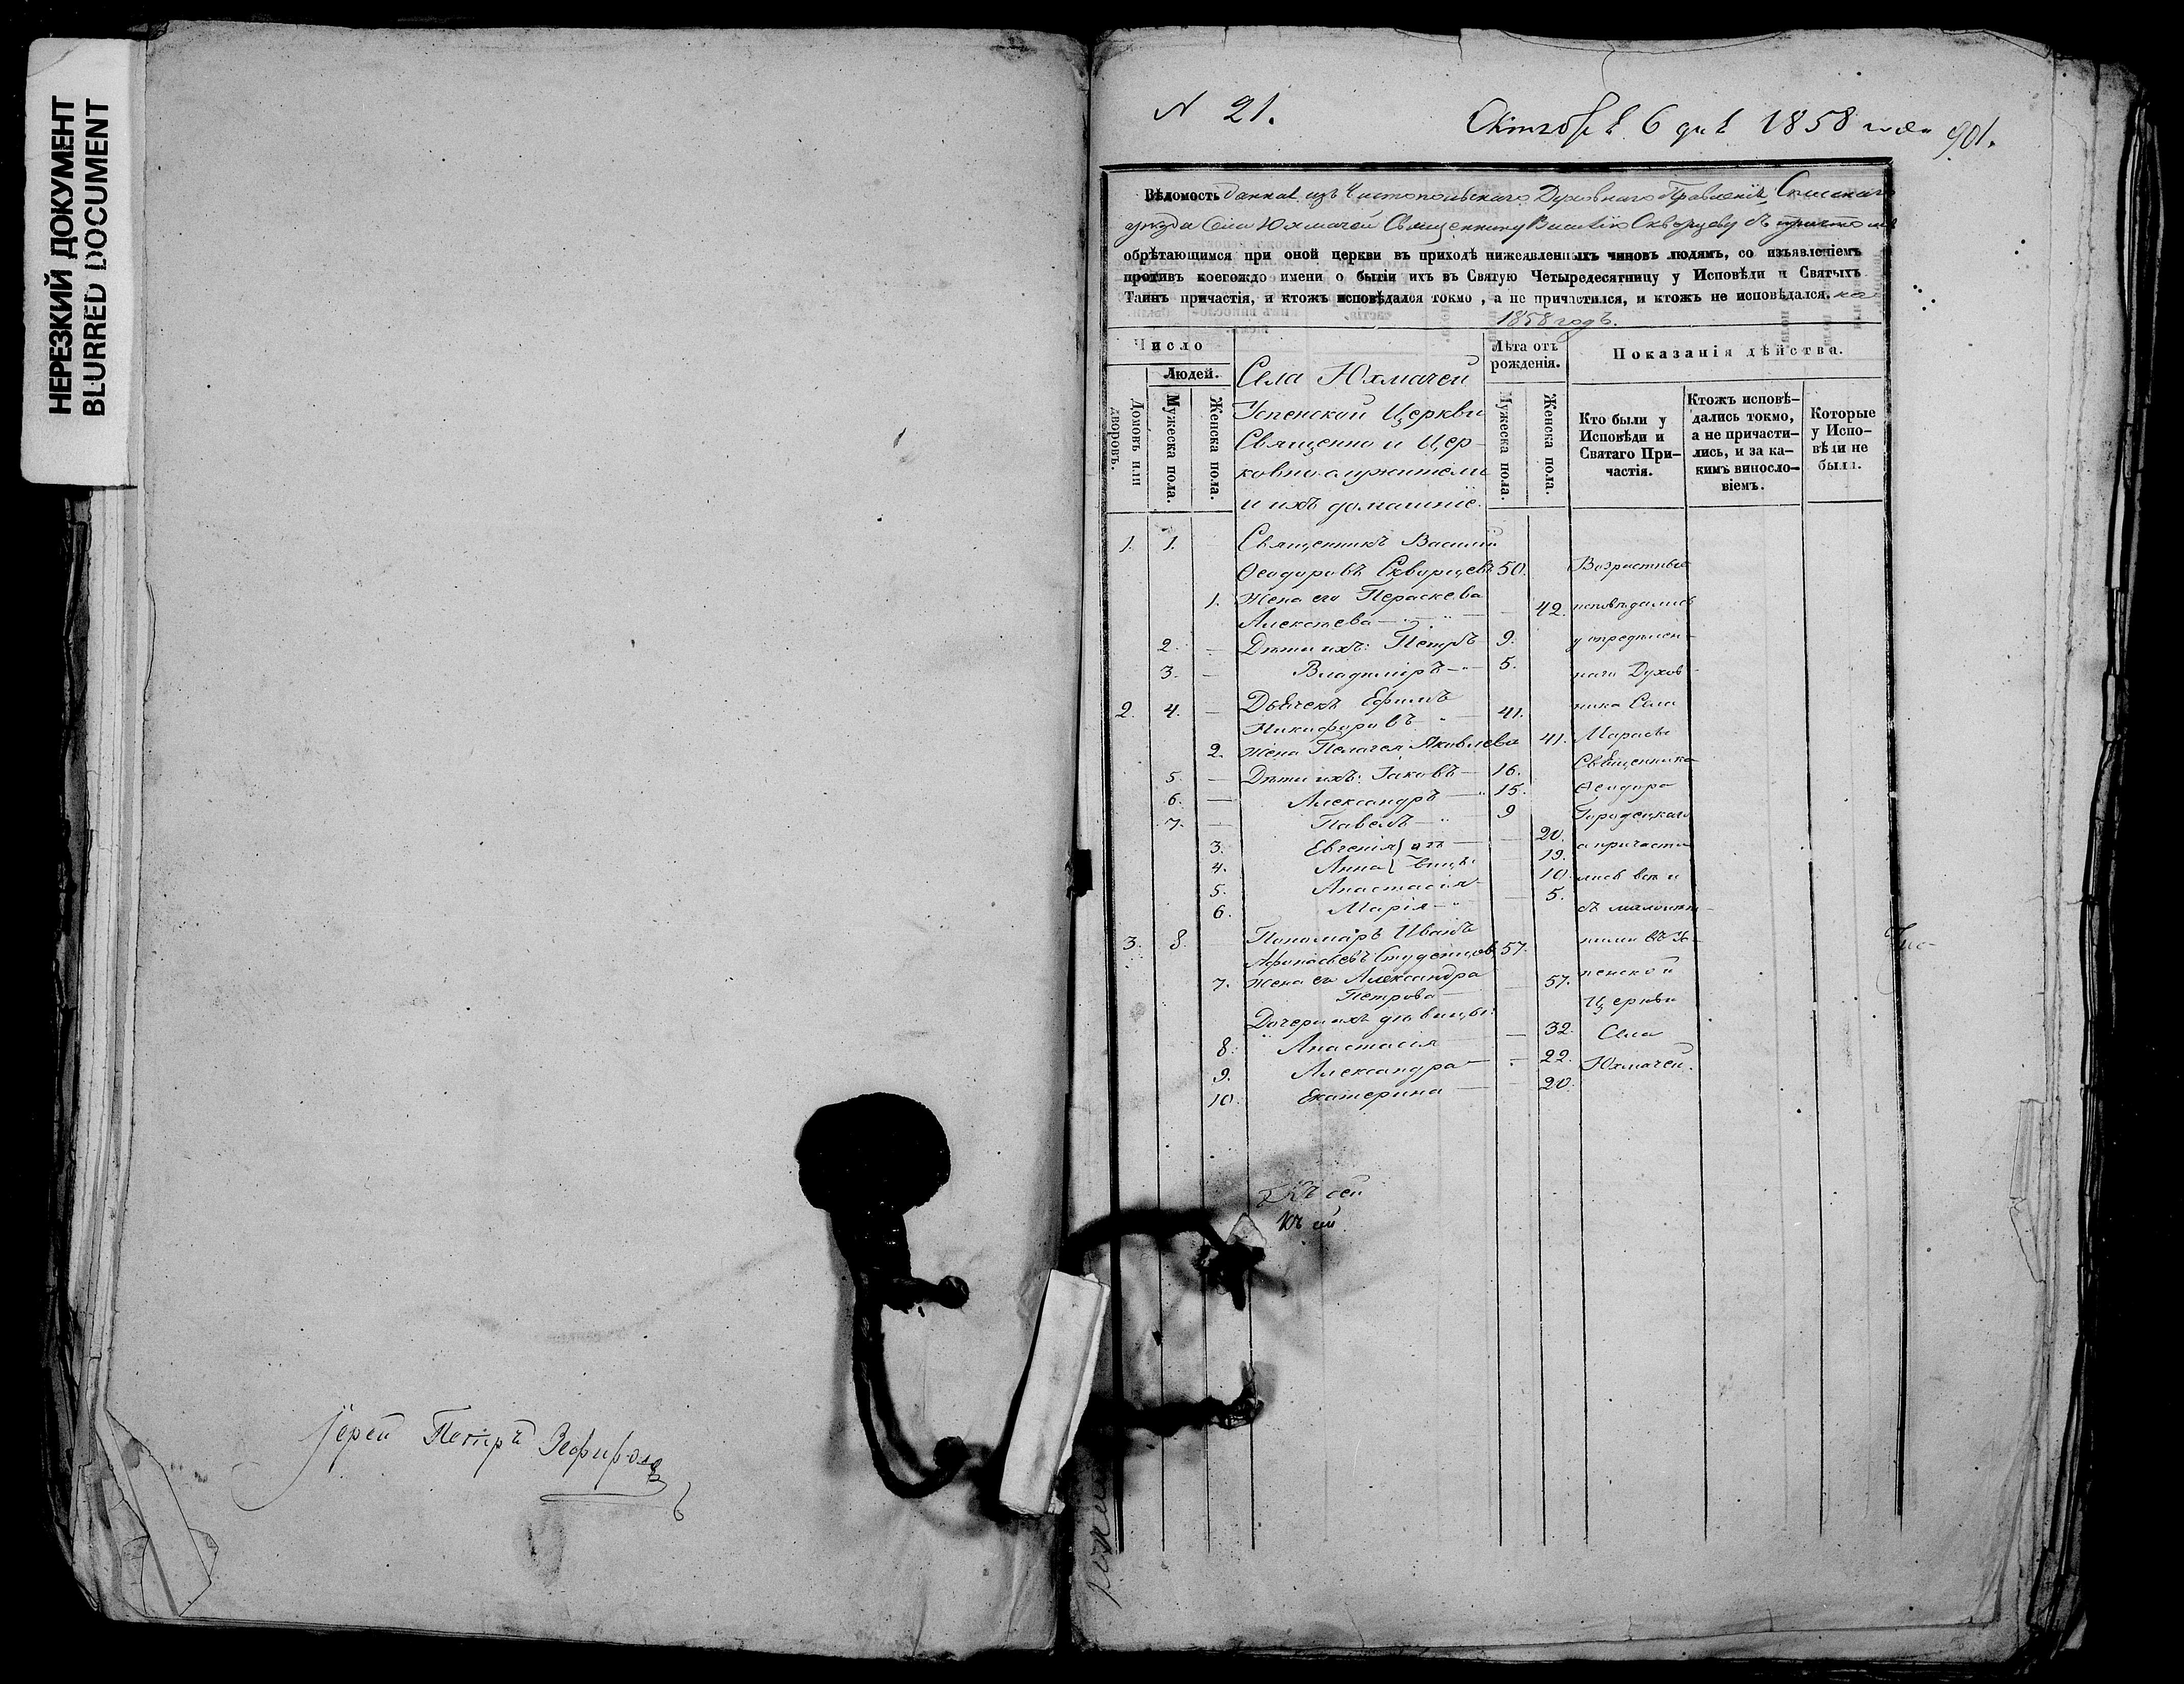 НЕРЕЗКИЙ ДОКУМЕНТ
BLURRED DOCUMENT
Іерей Петръ Зефировъ
N 21.
Октября 6 дня 1858 года
901.
Вѣдомость данная изъ Чистопольскаго Духовнаго Правленія Спасскаго
уѣзда Села Юхмачей Священнику Василію Скворцову съ причтомъ
обрѣтающимся при оной церкви въ приходѣ нижеявленныхъ чиновъ людямъ, со изъявленіемъ
противъ коегождо имени о бытіи ихъ въ Святую Четыредесятницу у Исповѣди и Святыхъ
Таинъ причастія, и ктожъ исповѣдался токмо, а не причастился, и ктожъ не исповѣдался. на
1858 годъ.
Число
Домовъ или дворовъ.
Людей.
Мужеска пола.
Женска пола.
Села Юхмачей
Успенской Церкви
Священно и Цер-
ковнослужители
и ихъ домашніе.
Лѣта отъ рожденія.
Мужеска пола.
Женска пола.
Показанія дѣйства.
Кто были у
Исповѣди и
Святаго При-
частія.
Ктожъ исповѣ-
дались токмо,
а не причасти-
лись, и за ка-
кимъ винosло-
віемъ.
Которые
у Испо-
вѣди не
были.
1. 1. Священникъ Василій
Ѳеодоровъ Скворцевъ 50. Возрастные
1. Жена его Параскева
Алексѣева 42. исповѣдались
2. Дѣти ихъ: Петръ 9. у опредѣлен-
3. Владиміръ 5. наго Духов-
2. 4. Дьячекъ Ефимъ
Никифоровъ 41. ника Села
2. Жена Пелагея Яковлева 41. Марасы
5. Дѣти ихъ: Іаковъ 16. Священника
6. Александръ 15. Ѳеодора
7. Павелъ 9 Городецкаго
3. Евгенія 20.
4. Анна 19. а причасти
5. Анастасія 10. лись всѣ и
6. Марія 5. съ малолѣт-
3. 8. Пономарь Иванъ
Афанасьевъ Студенцовъ 57. ними въ Ус-
7. Жена его Александра
Петрова 57. пенской
Дочери ихъ дѣвицы: Церкви
8. Анастасія 32. Села
9. Александра 22. Юхмачей.
10. Екатерина 20.
Къ сей